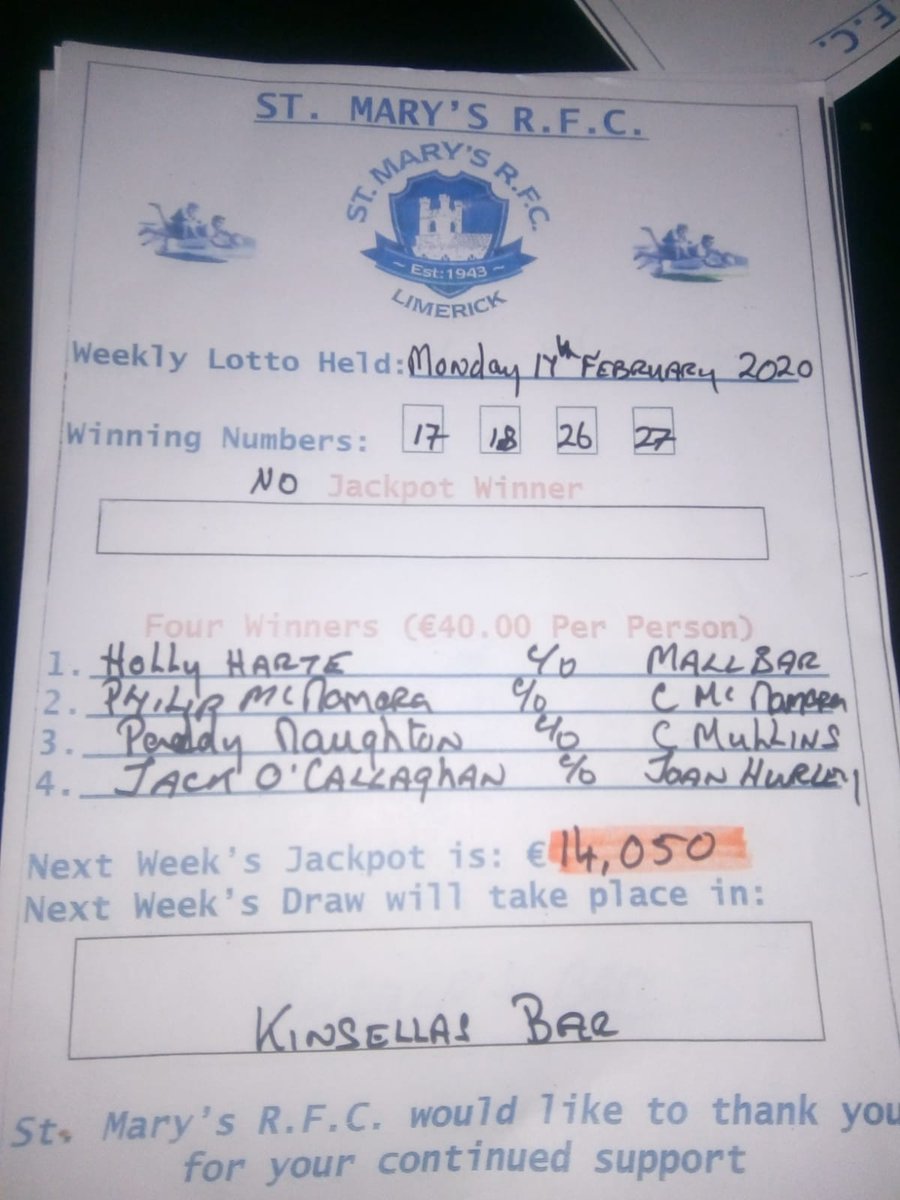 F.C.
ST. MARY'S R.F.C.
ST. MARY'S R.F.C.
~ Est:1943 ~
LIMERICK
Weekly Lotto Held: Monday 17th FEBRUARY 2020
Winning Numbers: 17 18 26 27
NO Jackpot Winner
Four Winners (€40.00 Per Person)
1. Holly HARTE c/o MALL BAR
2. PHILIP McNamara c/o C McNamara
3. Paddy Naughton c/o C MULLINS
4. JACK O'CALLAGHAN c/o JOAN HURLEY
Next Week's Jackpot is: €14,050
Next Week's Draw will take place in:
KINSELLAS BAR
St. Mary's R.F.C. would like to thank you
for your continued support